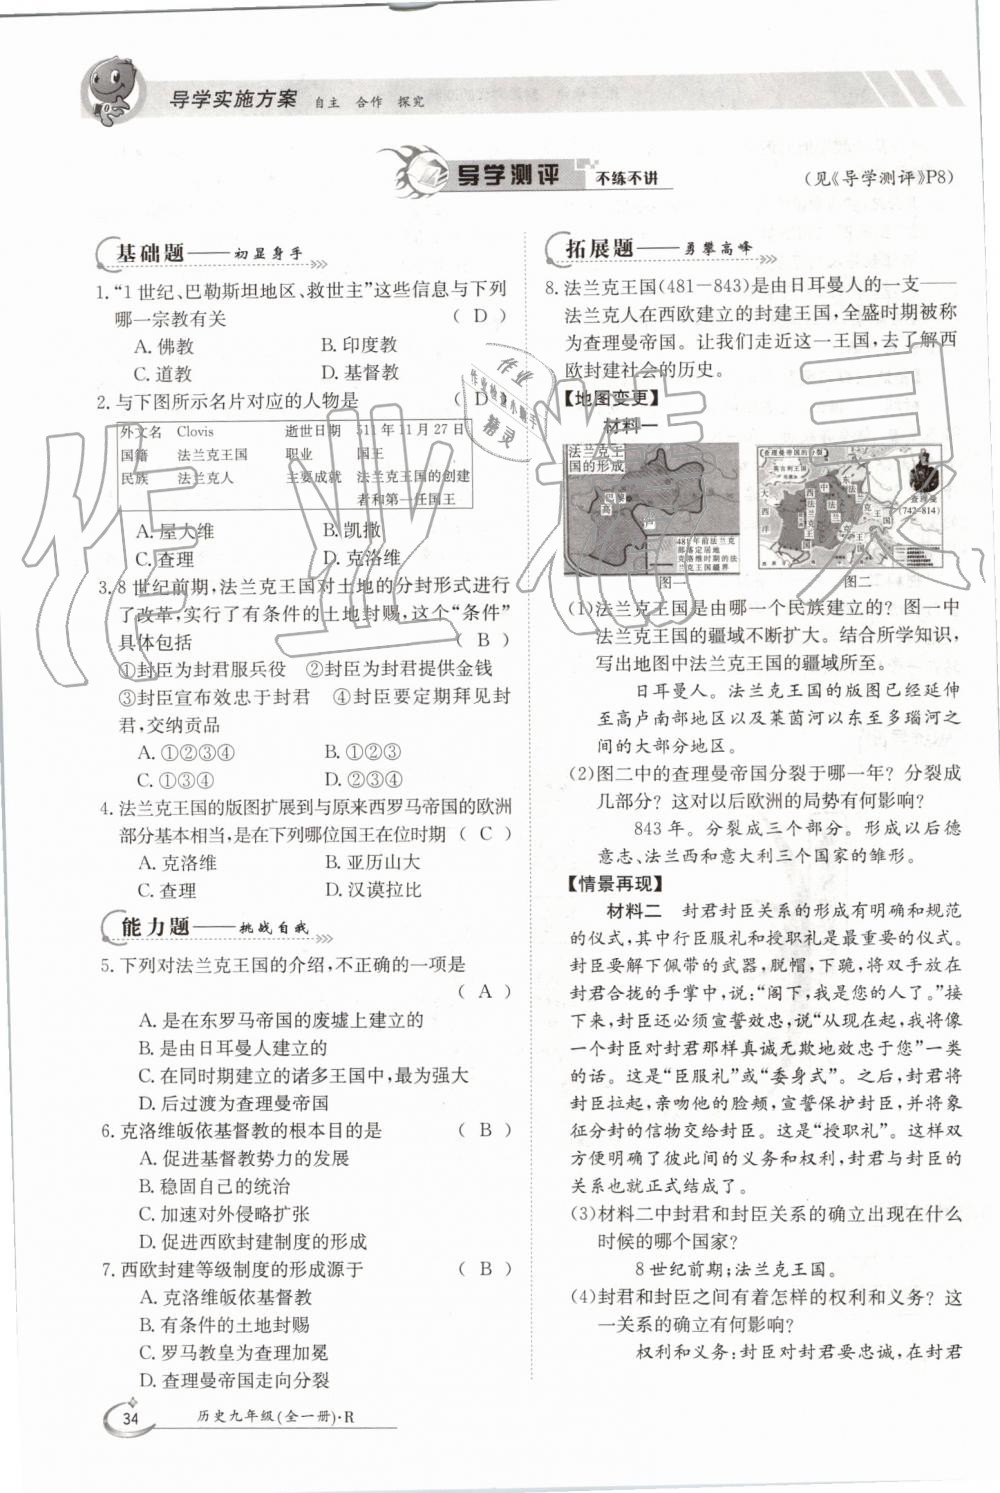 导学实施方案 自主 合作 探究
导学测评 不练不讲
(见《导学测评》P8)
基础题——初显身手
1.“1世纪、巴勒斯坦地区、救世主”这些信息与下列
哪一宗教有关 ( D )
A.佛教 B.印度教
C.道教 D.基督教
2.与下图所示名片对应的人物是 ( D )
外文名 Clovis 逝世日期 511年11月27日
国籍 法兰克王国 职业 国王
民族 法兰克人 主要成就 法兰克王国的创建
者和第一任国王
A.屋大维 B.凯撒
C.查理 D.克洛维
3.8世纪前期,法兰克王国对土地的分封形式进行
了改革,实行了有条件的土地封赐,这个“条件”
具体包括 ( B )
①封臣为封君服兵役 ②封臣为封君提供金钱
③封臣宣布效忠于封君 ④封臣要定期拜见封
君,交纳贡品
A.①②③④ B.①②③
C.①③④ D.②③④
4.法兰克王国的版图扩展到与原来西罗马帝国的欧洲
部分基本相当,是在下列哪位国王在位时期 ( C )
A.克洛维 B.亚历山大
C.查理 D.汉谟拉比
能力题——挑战自我
5.下列对法兰克王国的介绍,不正确的一项是
( A )
A.是在东罗马帝国的废墟上建立的
B.是由日耳曼人建立的
C.在同时期建立的诸多王国中,最为强大
D.后过渡为查理曼帝国
6.克洛维皈依基督教的根本目的是 ( B )
A.促进基督教势力的发展
B.稳固自己的统治
C.加速对外侵略扩张
D.促进西欧封建制度的形成
7.西欧封建等级制度的形成源于 ( B )
A.克洛维皈依基督教
B.有条件的土地封赐
C.罗马教皇为查理加冕
D.查理曼帝国走向分裂
拓展题——勇攀高峰
8.法兰克王国(481—843)是由日耳曼人的一支——
法兰克人在西欧建立的封建王国,全盛时期被称
为查理曼帝国。让我们走近这一王国,去了解西
欧封建社会的历史。
【地图变更】
材料一
法兰克王
国的形成
巴黎
高
卢
481年前法兰克
部落定居地
克洛维时期的法
兰克王国疆界
图一
查理曼帝国的分裂
英吉利王国
大西洋
西法兰克王国
中法兰克王国
东法兰克王国
查理曼
(742-814)
图二
(1)法兰克王国是由哪一个民族建立的?图一中
法兰克王国的疆域不断扩大。结合所学知识,
写出地图中法兰克王国的疆域所至。
日耳曼人。法兰克王国的版图已经延伸
至高卢南部地区以及莱茵河以东至多瑙河之
间的大部分地区。
(2)图二中的查理曼帝国分裂于哪一年?分裂成
几部分?这对以后欧洲的局势有何影响?
843年。分裂成三个部分。形成以后德
意志、法兰西和意大利三个国家的雏形。
【情景再现】
材料二 封君封臣关系的形成有明确和规范
的仪式,其中行臣服礼和授职礼是最重要的仪式。
封臣要解下佩带的武器,脱帽,下跪,将双手放在
封君合拢的手掌中,说:“阁下,我是您的人了。”接
下来,封臣还必须宣誓效忠,说“从现在起,我将像
一个封臣对封君那样真诚无欺地效忠于您”一类
的话。这是“臣服礼”或“委身式”。之后,封君将
封臣拉起,亲吻他的脸颊,宣誓保护封臣,并将象
征分封的信物交给封臣。这是“授职礼”。这样双
方便明确了彼此间的义务和权利,封君与封臣的
关系也就正式结成了。
(3)材料二中封君和封臣关系的确立出现在什么
时候的哪个国家?
8世纪前期;法兰克王国。
(4)封君和封臣之间有着怎样的权利和义务?这
一关系的确立有何影响?
权利和义务:封臣对封君要忠诚,在封君
34 历史九年级(全一册)·R
作业精灵
作业
作业检查小助手
精灵